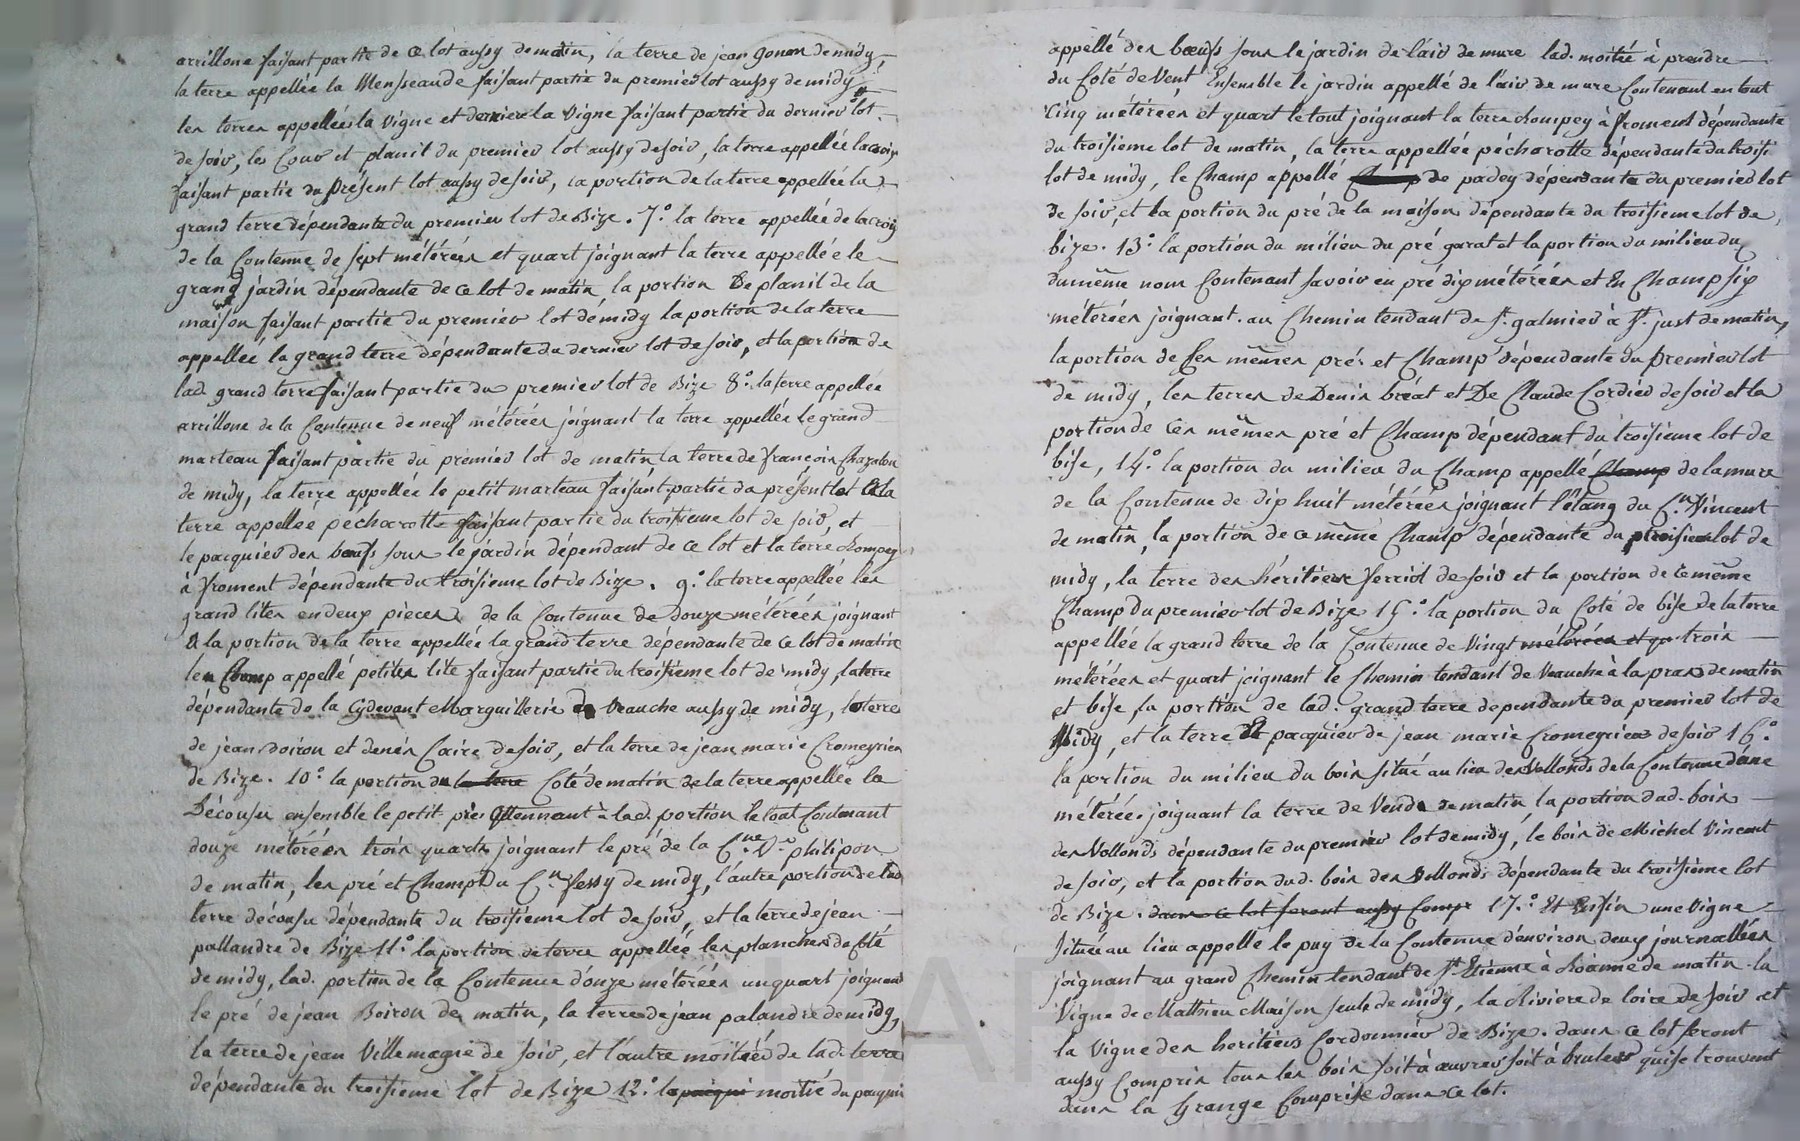 arrillone faisant partie de ce lot aussy de matin, la terre de jean gonon de midy,
la terre appellée la Mensseaude faisant partie du premier lot aussy de midy
les terres appellées la vigne et derriere la vigne faisant partie du dernier lot
de soir, les Cour et planil du premier lot aussy de soir, la terre appellée la croix
faisant partie du présent lot aussy de soir, la portion de la terre appellée la
grand terre dépendante du premier lot de Bize. 7.° la terre appellée de la croix
de la Contenue de sept métérées et quart joignant la terre appellée le
grand jardin dépendante de ce lot de matin, la portion De planil de la
maison faisant partie du premier lot de midy la portion de la terre
appellée la grand terre dépendante du dernier lot de soir, et la portion de
lad. grand terre faisant partie du premier lot de Bize 8.° la terre appellée
arrillone de la Contenue de neuf métérées joignant la terre appellée le grand
marteau faisant partie du premier lot de matin la terre de françois Chazalon
de midy, la terre appellée le petit marteau faisant partie du présent lot et la
terre appellée pécharotte faisant partie du troisieme lot de soir, et
le pacquier des bœufs sous le jardin dépendant de ce lot et la terre Rompey
à froment dépendante du troisieme lot de Bize. 9.° la terre appellée les
grand lites en deux pieces de la Contenue de douze métérées joignant
à la portion de la terre appellée la grand terre dépendante de ce lot de matin
les Champ appellé petites lite faisant partie du troisieme lot de midy, la terre
dépendante de la Cydevant Marguillerie de Veauche aussy de midy, la terre
de jean doiron et denis Caire de soir, et la terre de jean marie Cromeyrieu
de Bize. 10.° la portion du la terre Coté de matin de la terre appellée la
Découse ensemble le petit pré attennant à lad. portion le tout Contenant
douze métérées trois quarts joignant le pré de la C.ne V.e philipon
de matin, les pré et Champ du C.n fessy de midy, l'autre portion de lad
terre découse dépendante du troisieme lot de soir, et la terre de jean
pallandre de Bize 11.° la portion de terre appellée les planches de côté
de midy, lad. portion de la Contenue d'onze métérées un quart joignant
le pré de jean Boiron de matin, la terre de jean palandre de midy,
la terre de jean Villemagne de soir, et l'autre moitié de lad. terre
dépendante du troisieme lot de Bize 12.° la pacqui moitié du pacquier
appellé des bœufs sous le jardin de l'air de mure lad. moitié à prendre
du Coté de Vent Ensemble le jardin appellé de l'air de mure Contenant en tout
Cinq métérées et quart le tout joignant la terre Rompey à froment dépendante
du troisieme lot de matin, la terre appellée pécharotte dépendante du troisi
lot de midy, le Champ appellé de padey dépendante du premier lot
de soir, et la portion du pré de la maison dépendante du troisieme lot de
bize. 13.° la portion du milieu du pré garat et la portion du milieu du
du même nom Contenant savoir en pré dix métérées et En Champ six
métérées joignant au Chemin tendant de S.t galmier à S.t just de matin,
la portion de ses mêmes pré et Champ dépendante du premier lot
de midy, les terres de Denis bréat et De Claude Cordier de soir et la
portion de Ces mêmes pré et Champ dépendant du troisieme lot de
bise, 14.° la portion du milieu du Champ appellé Champ de la mure
de la Contenue de dix huit métérées joignant l'étang du C.n Vincent
de matin, la portion de ce même Champ dépendante du troisieme lot de
midy, la terre des héritiers ferriol de soir et la portion de ce même
Champ du premier lot de Bize 15.° la portion du Coté de bise de la terre
appellée la grand terre de la Contenue de Vingt métérées et qu trois
métérées et quart joignant le Chemin tendant de Veauche à la pras de matin
et bise, la portion de lad. grand terre dépendante du premier lot de
Midy, et la terre et pacquier de jean marie Cromeyrieu de soir 16.°
la portion du milieu du bois situé au lieu des Vollonds de la Contenue d'une
métérée joignant la terre de Vende de matin, la portion dud. bois
des Vollonds dépendante du premier lot de midy, le bois de Michel Vincent
de soir, et la portion dud. bois des Vollonds dépendante du troisieme lot
de Bize. dans ce lot seront aussy Compr 17.° Et Enfin une vigne
située au lieu appellé le puy de la Contenue d'environ deux journallées
joignant au grand Chemin tendant de S.t Etienne à Roanne de matin la
Vigne de Mathieu Maison seule de midy, la Riviere de loire de soir et
la vigne des heritiers Cordonnier de Bize. dans ce lot seront
aussy Compris tous les bois soit à œuvrer soit à bruler qui se trouvent
dans la Grange Comprise dans ce lot.